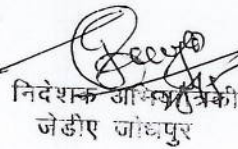 निदेशक अभियांत्रिकी
जेडीए जोधपुर